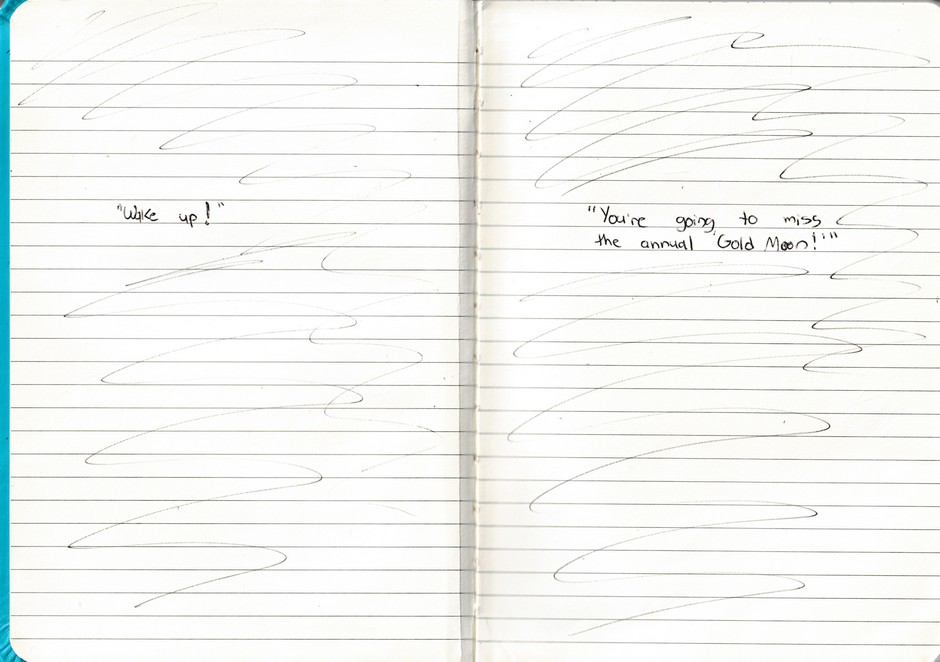 "Wake up!"
"You're going to miss
the annual 'Gold Moon!'"